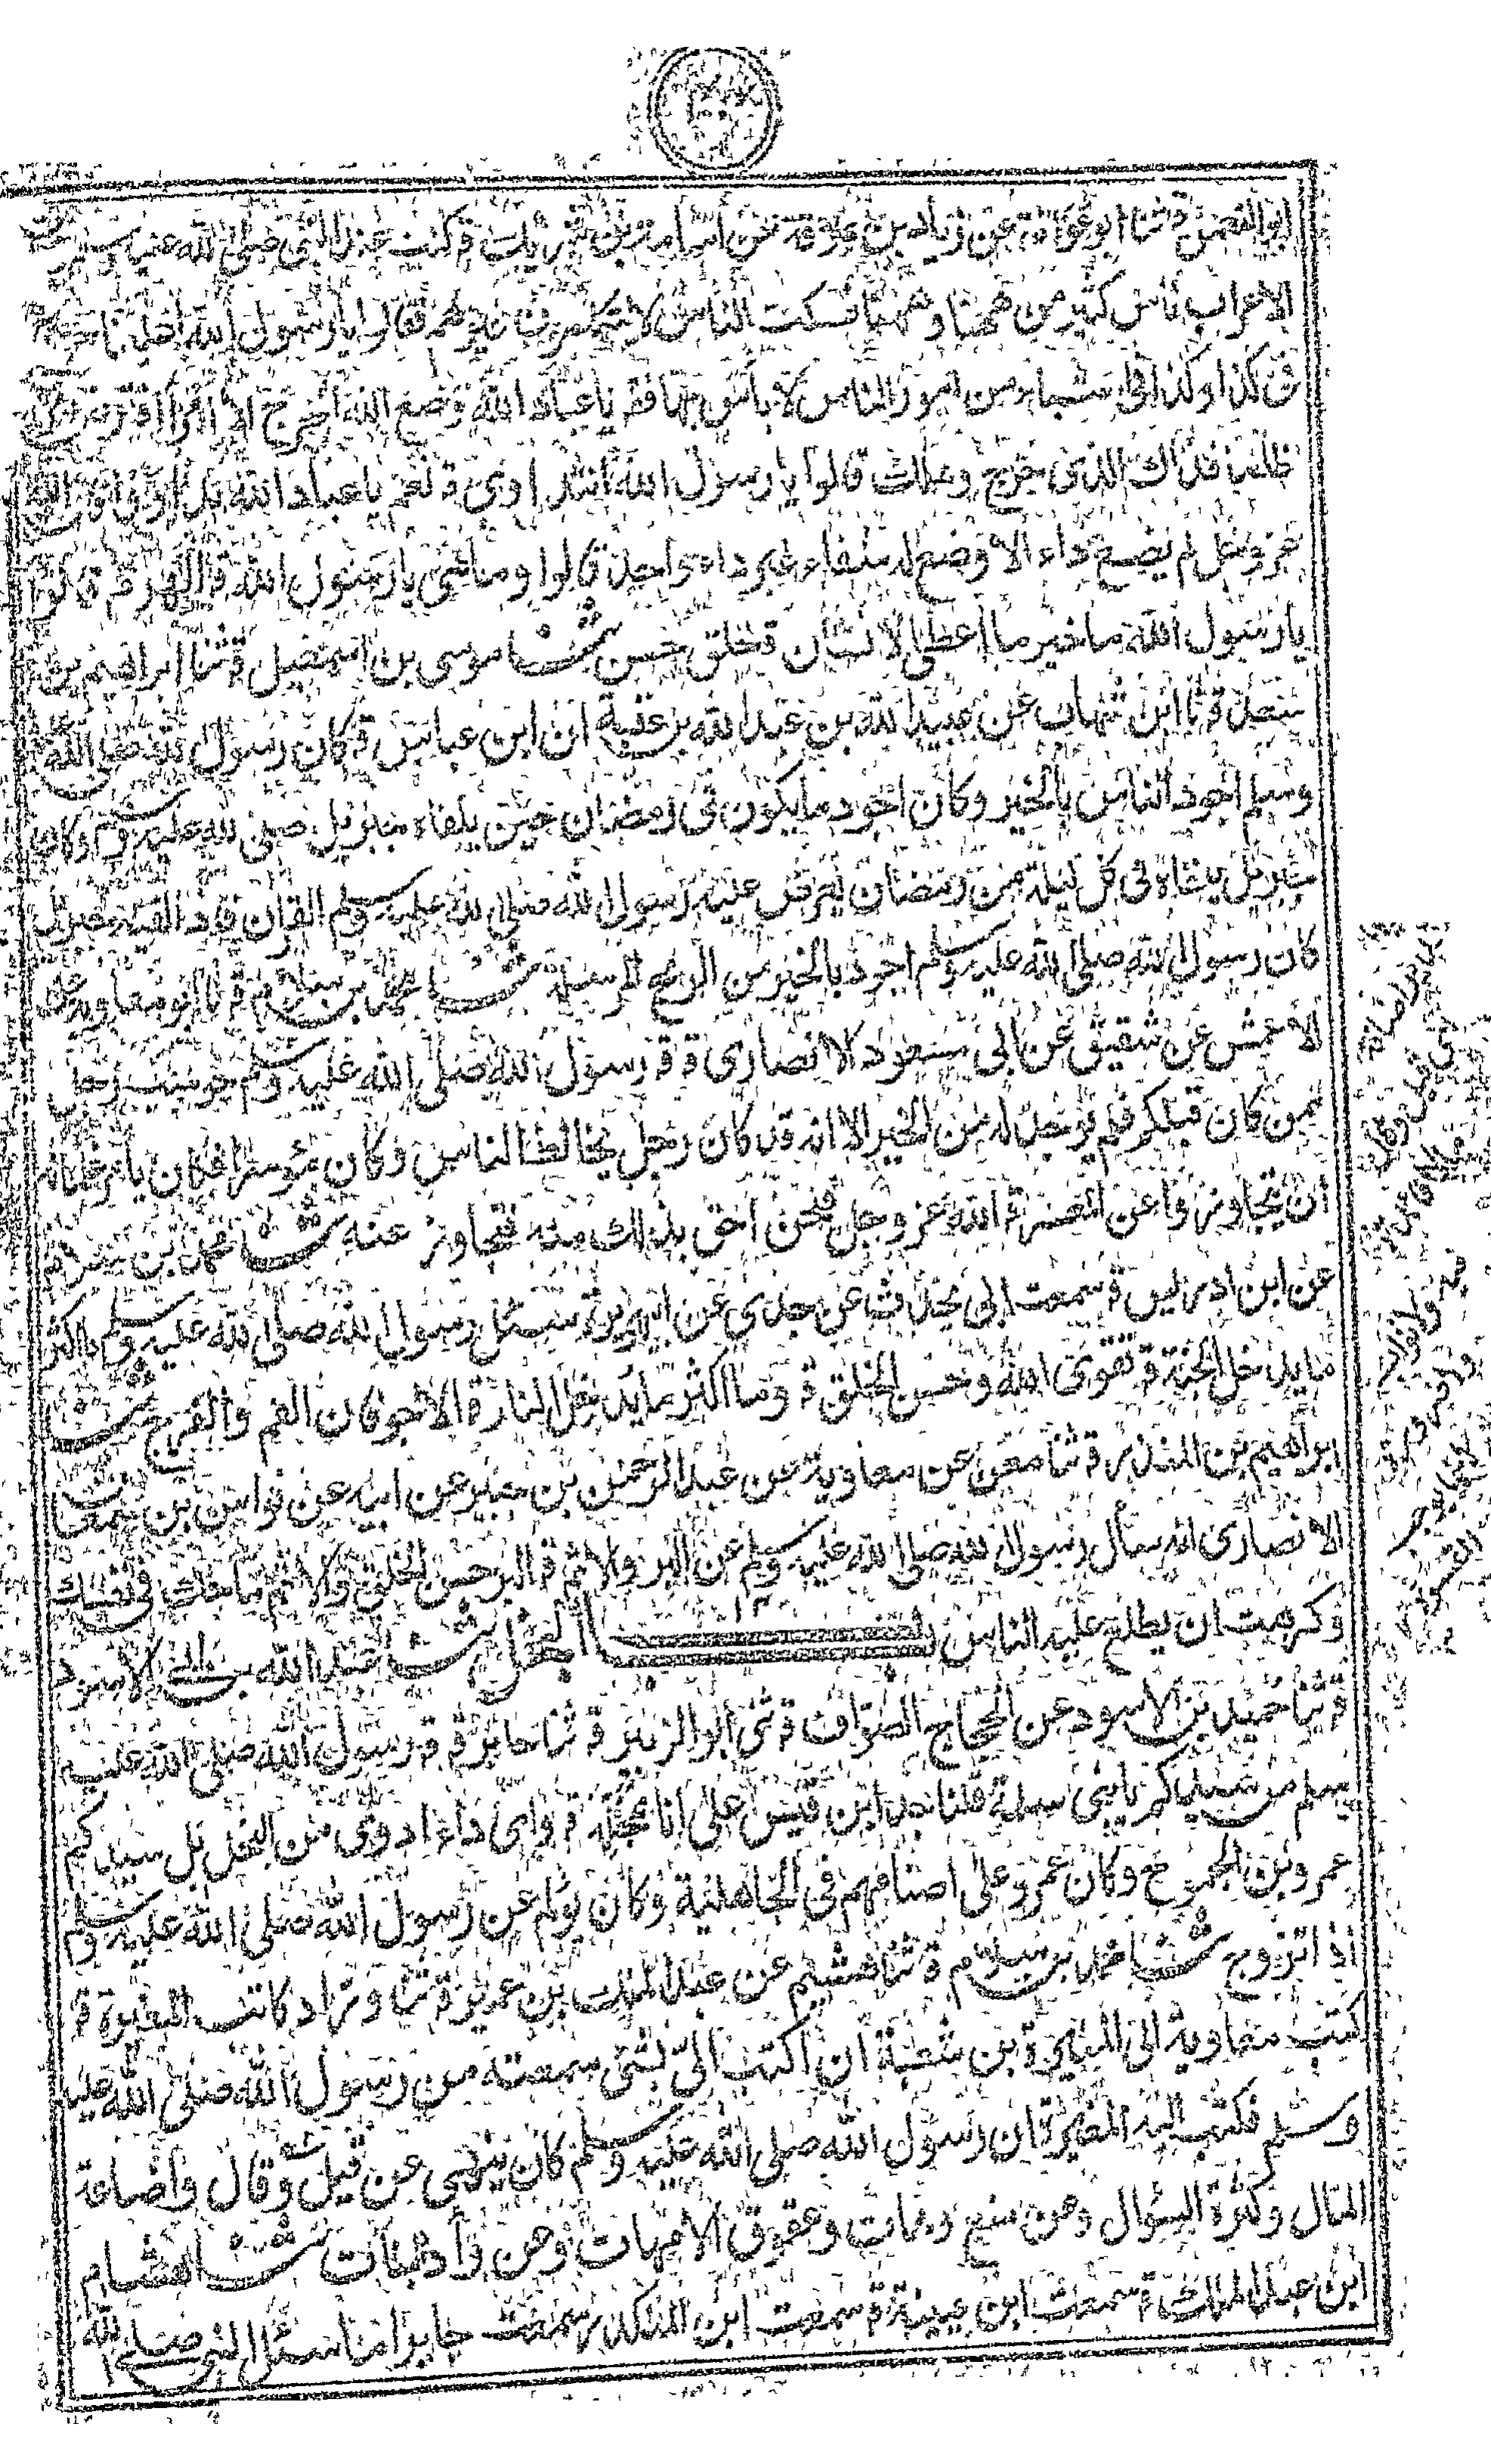 ابو النعمن ق ثنا ابو عوانة عن زياد بن علاقة عن اسامة بن شريك ق كنت عند النبى صلى الله عليه وسلم
الاعراب ناس كثير من ههنا وههنا فسكت الناس لا يتكلمون غيرهم فقالوا يا رسول الله اعلينا حرج
فى كذا وكذا فى اشياء من امور الناس لا باس بها فقـ يا عباد الله وضع الله الحرج الا امرأ اقترض
ظلما فذاك الذى حرج وهلك قالوا يا رسول الله انتداوى ق نعم يا عباد الله تداووا فان الله
عز وجل لم يضع داء الا وضع له شفاء غير داء واحد قالوا وما هى يا رسول الله ق الهرم قالوا
يا رسول الله ما خير ما اعطى الانسان ق خلق حسن ثنا موسى بن اسمعيل ق ثنا ابراهيم بن
سعد ق نا ابن شهاب عن عبيد الله بن عبد الله بن عتبة ان ابن عباس ق كان رسول الله صلى الله عليه
وسلم اجود الناس بالخير وكان اجود ما يكون فى رمضان حين يلقاه جبريل صلى الله عليه وسلم وكان
جبريل يلقاه فى كل ليلة من رمضان يعرض عليه رسول الله صلى الله عليه وسلم القران فاذا لقيه جبريل
كان رسول الله صلى الله عليه وسلم اجود بالخير من الريح المرسلة ثنا محمد بن سلام ق انا ابو معاوية عن
الاعمش عن شقيق عن ابى مسعود الانصارى ق ق رسول الله صلى الله عليه وسلم حوسب رجل
ممن كان قبلكم فلم يوجد له من الخير الا انه قد كان رجل يخالط الناس وكان موسرا فكان يأمر غلمانه
ان يتجاوزوا عن المعسر ق الله عز وجل فنحن احق بذلك منه فتجاوز عنه ثنا محمد بن سلام
عن ابن ادريس ق سمعت ابى يحدث عن جدى عن ابى هريرة سئل رسول الله صلى الله عليه وسلم ما اكثر
ما يدخل الجنة ق تقوى الله وحسن الخلق ق وما اكثر ما يدخل النار ق الاجوفان الفم والفرج ثنا
ابراهيم بن المنذر ق ثنا معن عن معاوية عن عبد الرحمن بن جبير عن ابيه عن نواس بن سمعان
الانصارى انه سأل رسول الله صلى الله عليه وسلم عن البر والاثم ق البر حسن الخلق والاثم ما حك فى نفسك
وكرهت ان يطلع عليه الناس باب البخل ثنا عبد الله بن ابى الاسود
ق ثنا حميد بن الاسود عن الحجاج الصواف ق ثنى ابو الزبير ق ثنا جابر ق ق رسول الله صلى الله عليه
وسلم من سيدكم يا بنى سلمة قلنا جد ابن قيس على انا نبخله ق واى داء ادوى من البخل بل سيدكم
عمرو بن الجموح وكان عمرو على اصنامهم فى الجاهلية وكان يولم عن رسول الله صلى الله عليه وسلم
اذا تزوج ثنا محمد بن سلام ق ثنا هشيم عن عبد الملك بن عمير ق ثنا وراد كاتب المغيرة ق
كتب معاوية الى المغيرة بن شعبة ان اكتب الى بشئ سمعته من رسول الله صلى الله عليه
وسلم فكتب اليه المغيرة ان رسول الله صلى الله عليه وسلم كان ينهى عن قيل وقال واضاعة
المال وكثرة السؤال وعن منع وهات وعقوق الامهات وعن وأد البنات ثنا هشام
ابن عبد الملك ق سمعت ابن عيينة ق سمعت ابن المنكدر سمعت جابرا ما سئل النبى صلى الله